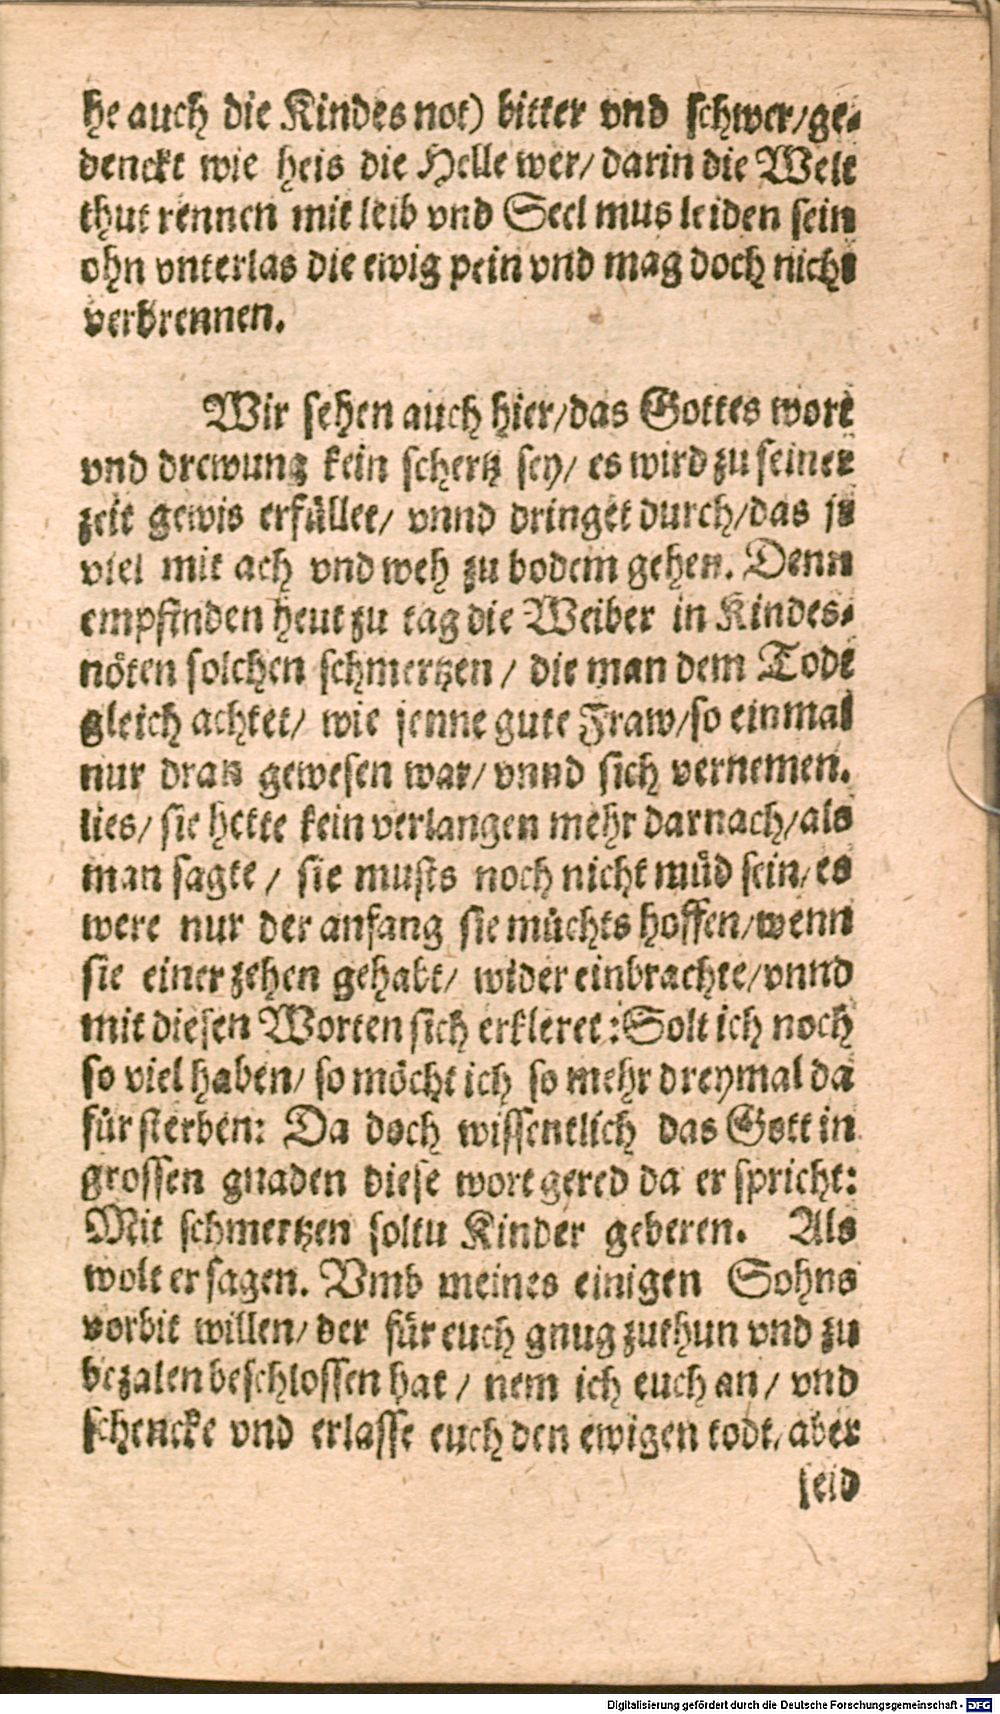 he auch die Kindes not) bitter vnd schwer/ge-
denckt wie heis die Helle wer/ darin die Welt
thut rennen mit leib vnd Seel mus leiden sein
ohn vnterlas die ewig pein vnd mag doch nicht
verbrennen.
Wir sehen auch hier/das Gottes wort
vnd drewung kein schertz sey/ es wird zu seiner
zeit gewis erfüllet/ vnnd dringet durch/das ja
viel mit ach vnd weh zu bodem gehen. Denn
empfinden heut zu tag die Weiber in Kindes-
nöten solchen schmertzen / die man dem Tode
gleich achtet/ wie jenne gute Fraw/so einmal
nur dran gewesen war/ vnnd sich vernemen.
lies/ sie hette kein verlangen mehr darnach/als
man sagte / sie musts noch nicht müd sein/es
were nur der anfang sie müchts hoffen/wenn
sie einer zehen gehabt/ wider einbrachte/vnnd
mit diesen Worten sich erkleret:Solt ich noch
so viel haben/ so möcht ich so mehr dreymal da
für sterben: Da doch wissentlich das Gott in
grossen gnaden diese wort gered da er spricht:
Mit schmertzen soltu Kinder geberen. Als
wolt er sagen. Vmb meines einigen Sohns
vorbit willen/ der für euch gnug zuthun vnd zu
bezalen beschlossen hat / nem ich euch an/ vnd
schencke vnd erlasse euch den ewigen todt/aber
seid
Digitalisierung gefördert durch die Deutsche Forschungsgemeinschaft - DFG